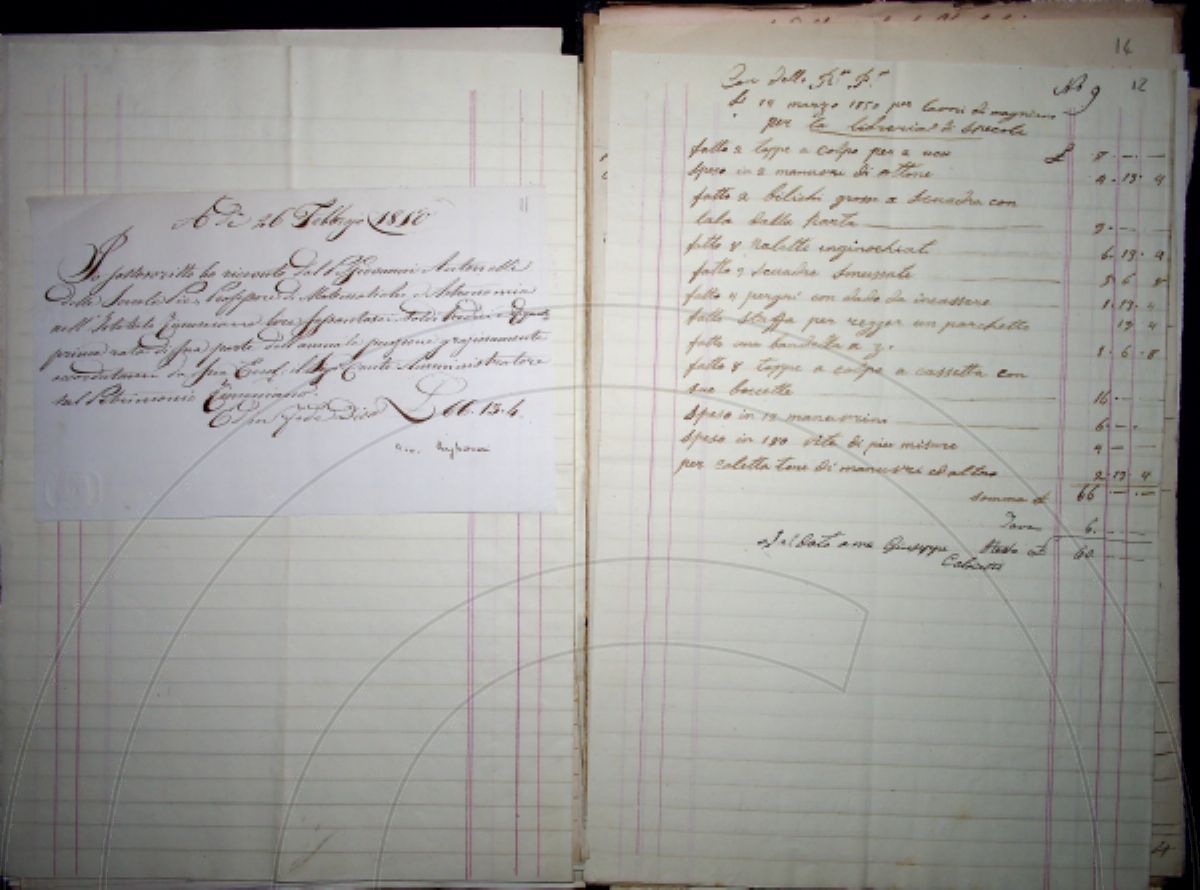 11
A Dì 26 Febbrajo 1810
Io sottoscritto ho ricevuto dal P. Giovanni Antonelli
delle Scuole Pie, Professore di Matematiche e Astronomia
nell' Istituto Ximeniano
prima rata di sua parte dell'annuale pensione graziosamente
da Sua Amministratore
del Patrimonio Ximeniano.
66. 13. 4.
14
No 9 12
18 marzo 1850 per lavori di magnano
per la libreria di Specola
fatto 2 toppe a colpo per 2 usci £ 8 . — . —
Speso in 2 manuvri di ottone 4 . 13 . 4
fatto 2 bilichi grossi a scuadra con
tala della Porta 9 . — . —
fatto 8 paletti inginochiati 6 . 13 . 4
fatto 2 scuadre smuzzate 3 6 8
fatto 4 pergni con dado da incassare 1 . 13 . 4
fatto staffa per regger un parchetto 13 4
fatto una bandella a z. 3 . 6 . 8
fatto 8 toppe a colpo a cassetta con
sue bocette 16 — —
Speso in 12 manuvrini 6 . — .
Speso in 180 vite di piu misure 4 — —
per di manuvri ed altro 2 . 13 . 4
somma £ 66 . — . —
Tara 6 . — —
Saldato a me Giuseppe Resta £ 60 . — —